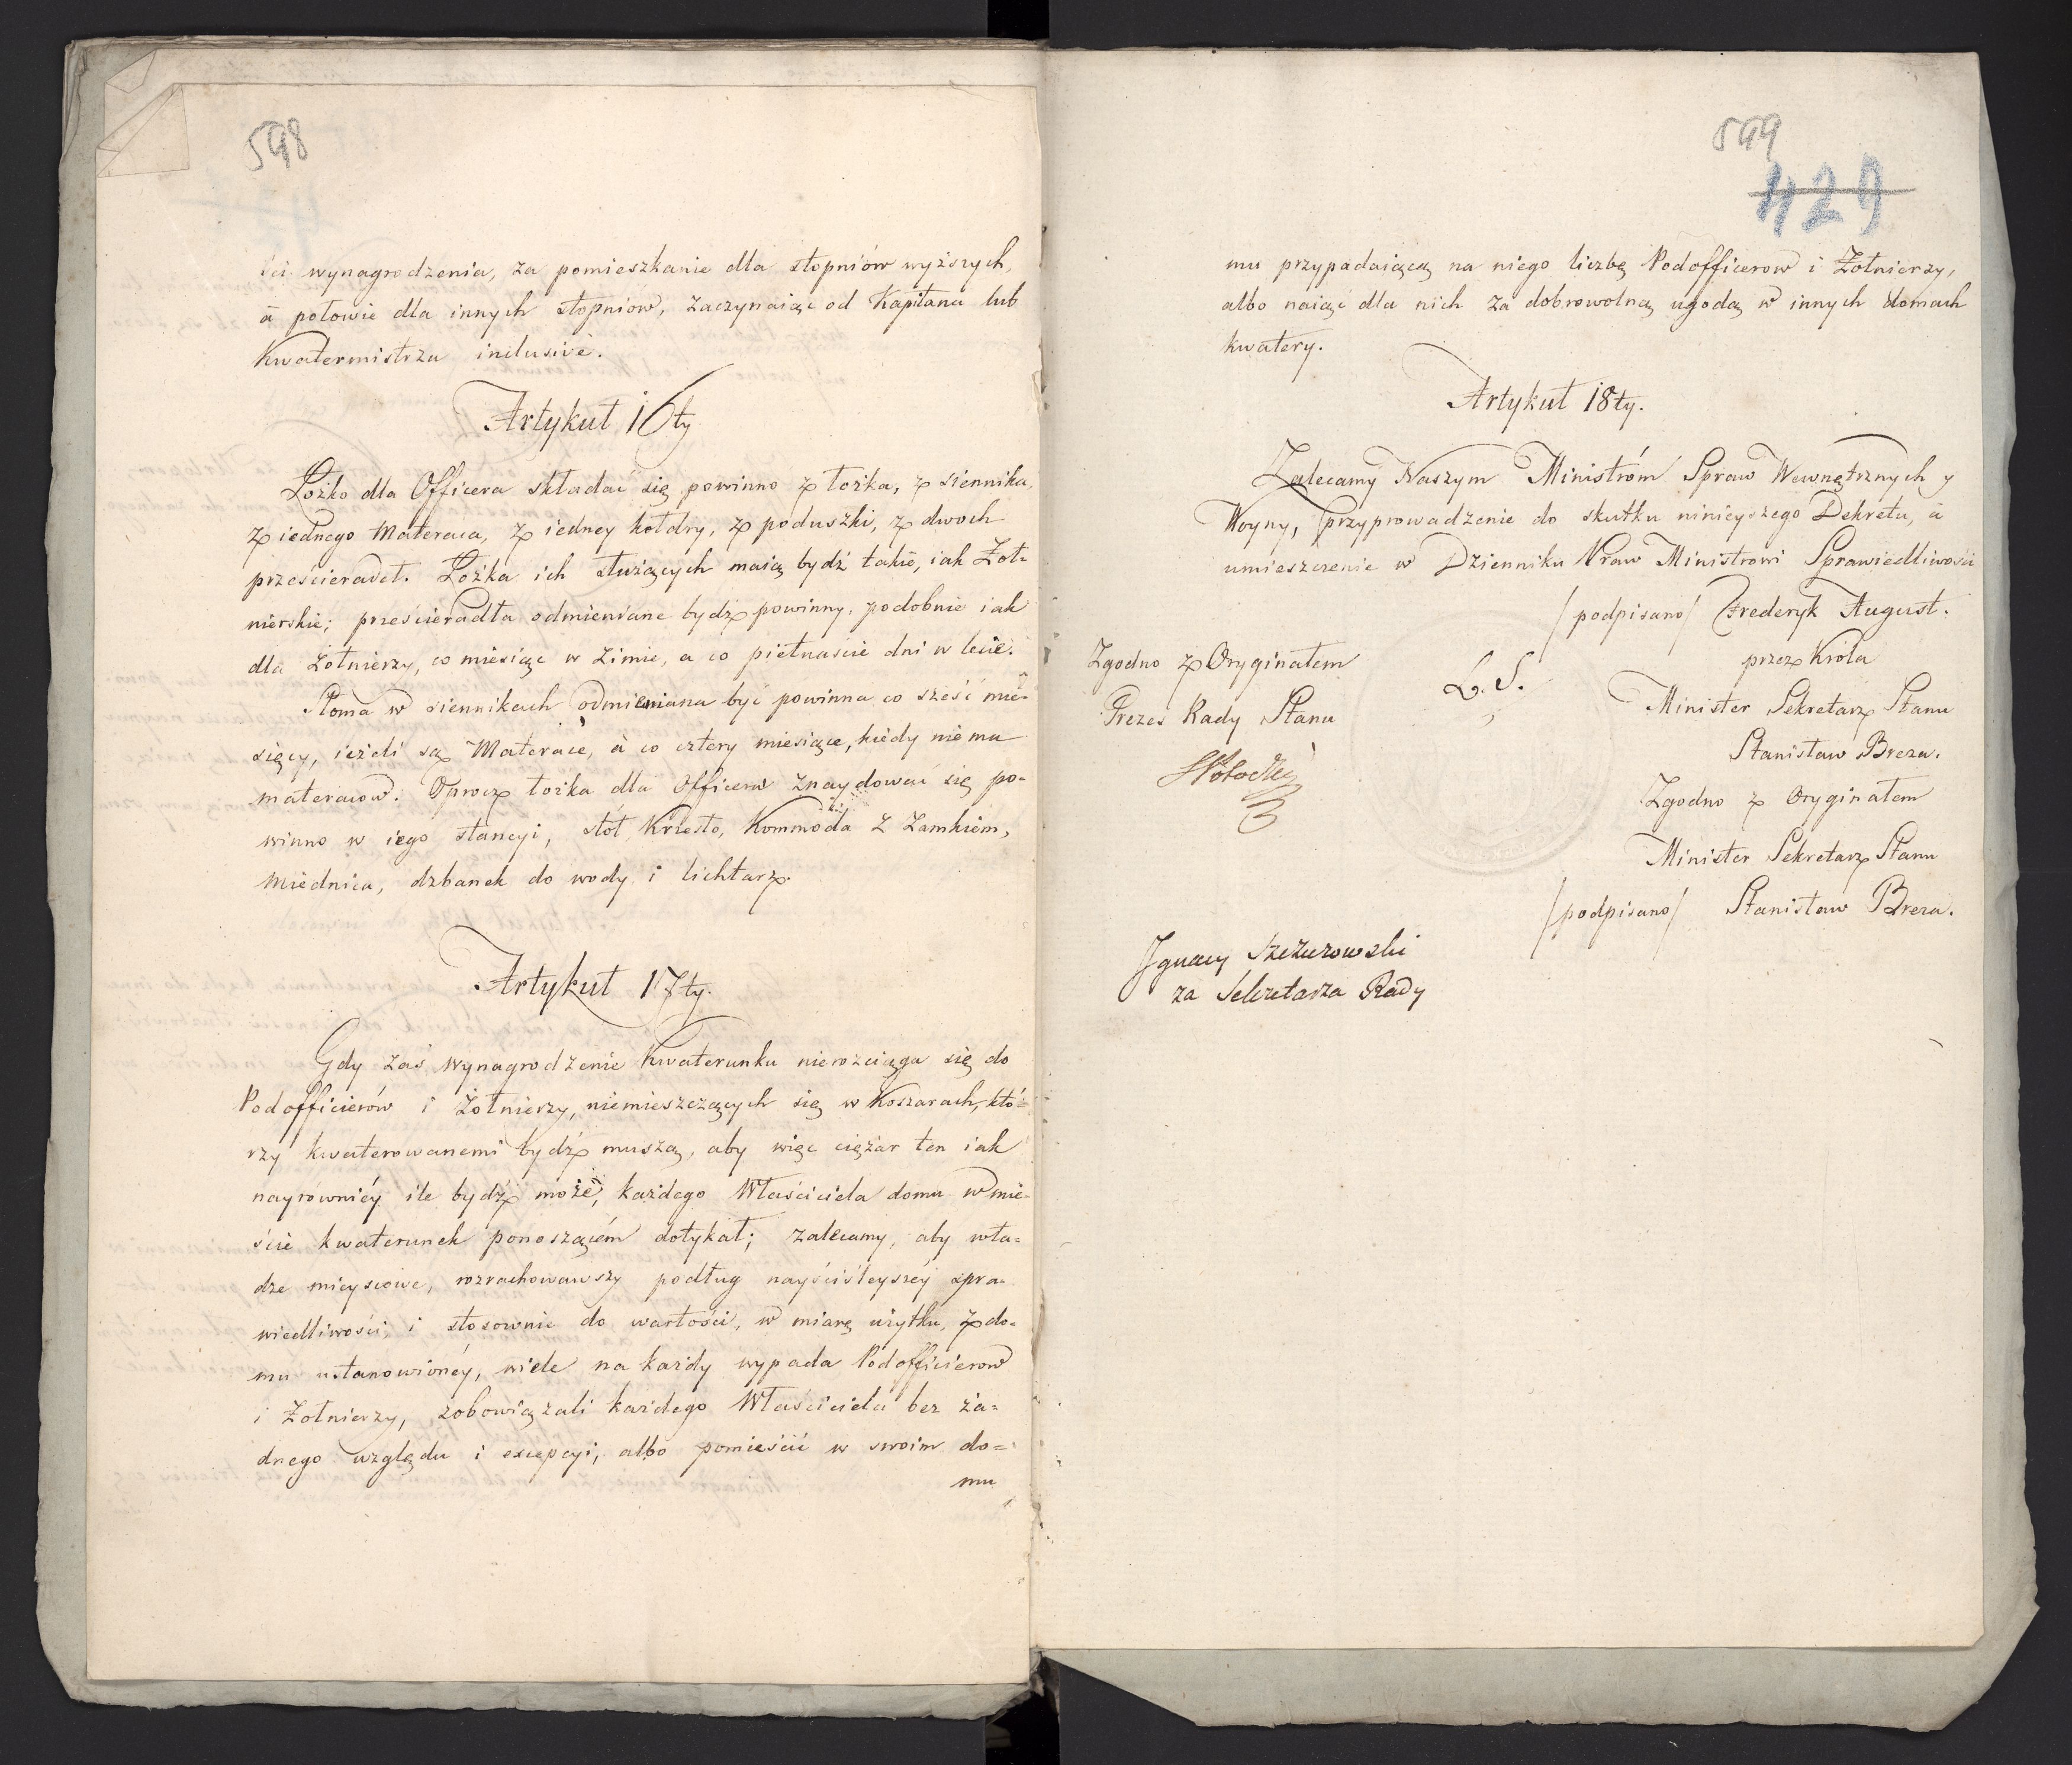 598
ści wynagrodzenia, za pomieszkanie dla stopniów wyższych,
à połowie dla innych stopniów, zaczynaiąc od Kapitana lub
Kwatermistrza inclusive.
Artykuł 16ty
Łożko dla Officera składać się powinno z łożka, z siennika,
z iednego Materaca, z iedney kołdry, z poduszki, z dwoch
prześcieradeł. Łożka ich służących maią bydź takie, iak Żoł-
nierskie; prześcieradła odmieniane bydź powinny, podobnie iak
dla żołnierzy, co miesiąc w zimie, a co piętnaście dni w lecie.
Słoma w siennikach odmieniana być powinna co sześć mie-
sięcy, ieżeli są Materace, à co cztery miesiące, kiedy nie ma
materacow. Oprocz łożka dla Officera znaydować się po-
winno w iego stancyi, stół, Krzesło, Kommoda z Zamkiem,
miednica, dzbanek do wody i lichtarz.
Artykuł 17ty.
Gdy zaś wynagrodzenie Kwaterunku nierozciąga się do
Podofficierów i Żołnierzy, niemieszczących się w Koszarach, któ-
rzy kwaterowanemi bydź muszą, aby więc ciężar ten iak
nayrówniéy ile bydź może, każdego Właściciela domu w mie-
ście kwaterunek ponoszącém dotykał; zalecamy, aby wła-
dze mieyscowe, rozrachowawszy podług nayściśleyszéy spra-
wiedliwości, i stosownie do wartości, w miarę użytku, z do-
mu ustanowionéy, wiele na każdy wypada Podofficierow
i Żołnierzy, zobowiązali każdego Właściciela bez ża-
dnego względu i excepcyi, albo pomieścić w swoim do-
mu
599
429
mu przypadaiącą na niego liczbę Podofficerow i Żołnierzy,
albo naiąć dla nich za dobrowolną ugodą w innych domach
kwatery.
Artykuł 18ty.
Zalecamy Naszym Ministróm Spraw Wewnętrznych y
Woyny, przyprowadzenie do skutku ninieyszego Dekretu, à
umieszczenie w Dzienniku Praw Ministrowi Sprawiedliwości
/podpisano/ Frederyk August.
przez Krola
Minister Sekretarz Stanu
Stanisław Breza.
Zgodno z Oryginałem
Minister Sekretarz Stanu
/podpisano/ Stanisław Breza.
L. S.
Zgodno z Oryginałem
Prezes Rady Stanu
Ignacy Szczurowski
za Sekretarza Rady